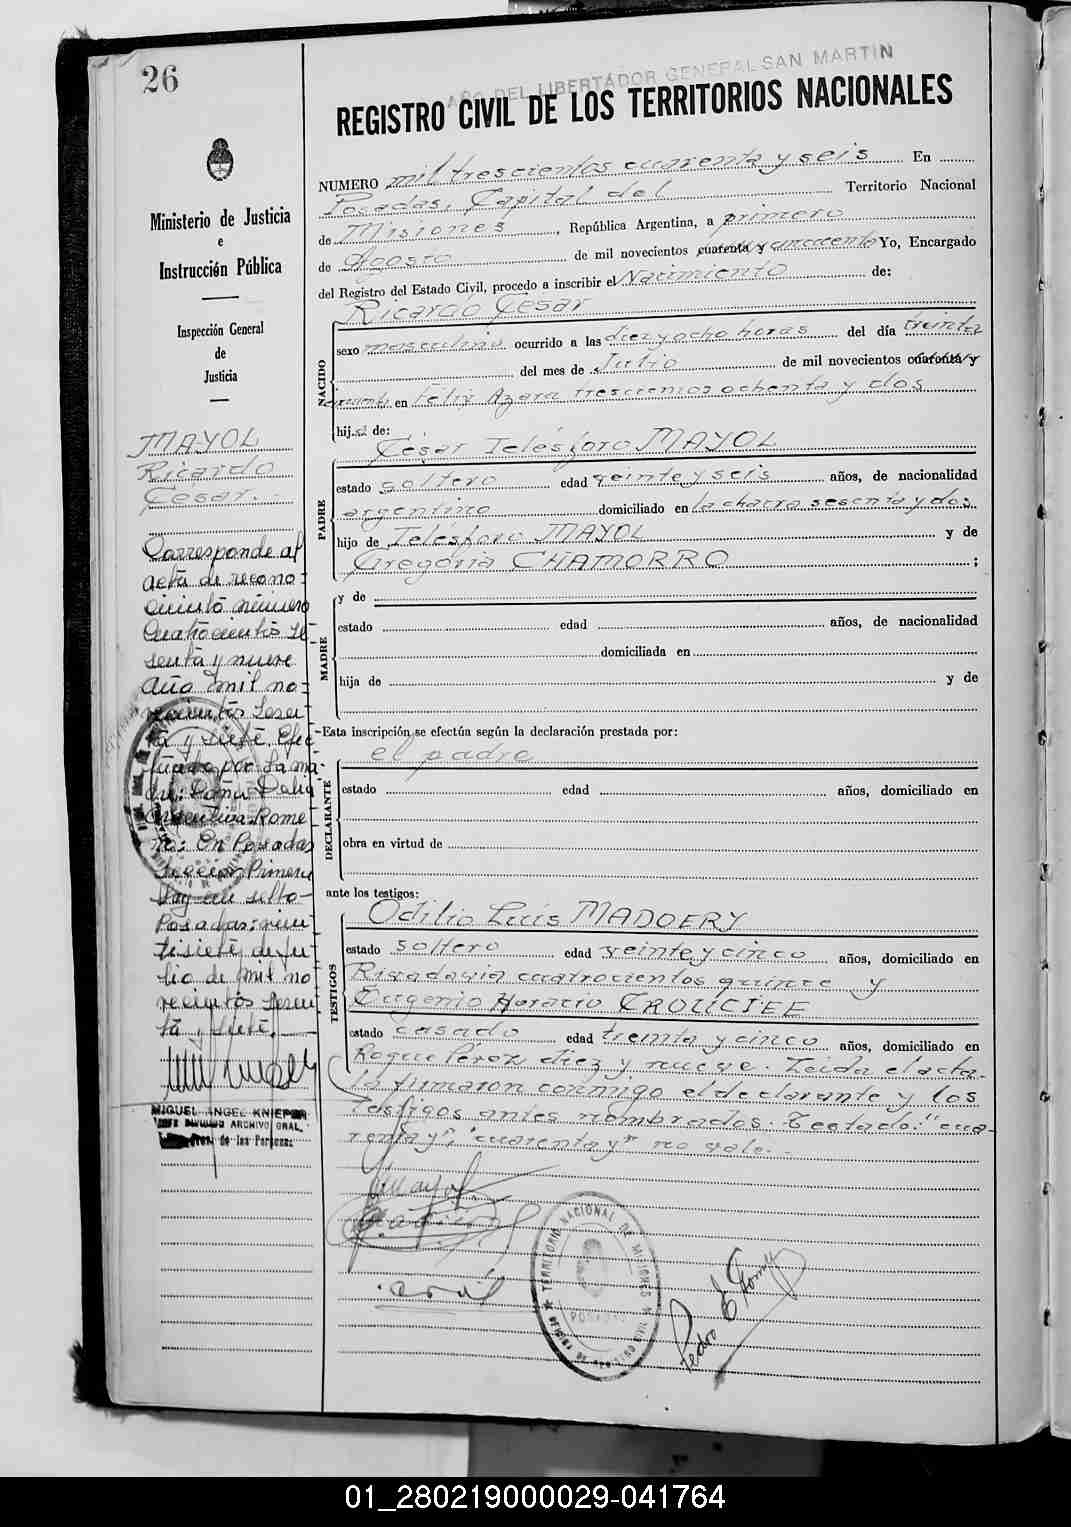 26
AÑO DEL LIBERTADOR GENERAL SAN MARTIN
REGISTRO CIVIL DE LOS TERRITORIOS NACIONALES
Ministerio de Justicia
e
Instrucción Pública
Inspección General
de
Justicia
MAYOL
Ricardo
Cesar.
Corresponde al
acta de recono-
cimiento número
Cuatrocientos se-
senta y nueve
Año mil no-
vecientos sesen-
ta y siete. Efec-
tuado por la ma-
dre: Doña Delia
Rome-
ro: En Posadas
Sección Primera
Hoy en
Posadas: vein-
tisiete de ju-
lio de mil no-
vecientos sesen-
ta y siete.
MIGUEL ANGEL KNIEPER
JEFE DIVISION ARCHIVO GRAL.
de las Personas
NUMERO mil trescientos cuarenta y seis En
Posadas, Capital del Territorio Nacional
de Misiones, República Argentina, a primero
de Agosto de mil novecientos cuarenta y cincuenta Yo, Encargado
del Registro del Estado Civil, procedo a inscribir el Nacimiento de:
Ricardo Cesar
NACIDO
sexo masculino ocurrido a las diez y ocho horas del día treinta
del mes de Julio de mil novecientos cuarenta y
cincuenta en Félix Azara trescientos ochenta y dos
hijo de:
César Telésforo MAYOL
PADRE
estado soltero edad veinte y seis años, de nacionalidad
argentino domiciliado en la chacra sesenta y dos
hijo de Telésforo MAYOL y de
Gregoria CHAMORRO ;
MADRE
y de
estado edad años, de nacionalidad
domiciliada en
hija de y de
Esta inscripción se efectúa según la declaración prestada por:
el padre
DECLARANTE
estado edad años, domiciliado en
obra en virtud de
ante los testigos:
Odilio Luis MADOERY
TESTIGOS
estado soltero edad veinte y cinco años, domiciliado en
Rivadavia cuatrocientos quince y
Eugenio Horacio CROUCIEE
estado casado edad treinta y cinco años, domiciliado en
Roque Pérez diez y nueve. Leida el acta
la firmaron conmigo el declarante y los
testigos antes nombrados. Testado: "cua-
renta y", "cuarenta y" no vale.
Mayol
TERRITORIO NACIONAL DE MISIONES
POSADAS
Pedro E
01_280219000029-041764